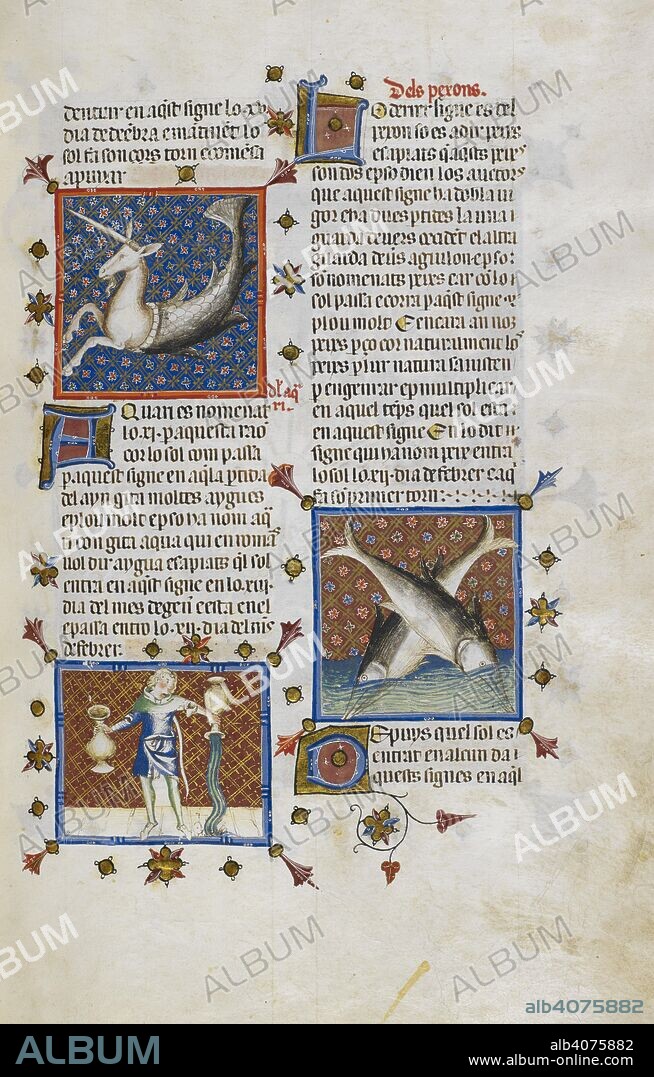 dentrar en aq̃st signe lo·xv·
dia de deẽbra e mãtinẽt lo
sol fa son cors torn e comẽsa
a puiar
dl' aq̃
ri·
Aquari es nomenat
lo·xi·p aquesta rao
cor lo sol com passa
p aquest signe en aq̃la ptida
del ayn gita moltes aygues
e plou molt e p so ha nom aq̃
ri con gita aqua qui en romã
uol dir aygua e sapiats q̃l sol
entra en aq̃st signe en lo·xvi·
dia del mes de genẽ e esta en el
e passa en tro lo·xii·dia del m̃s
de febrer·
Dels pexons·
Lo derrer signe es del
pexon so es a dir pexis
e sapiats q̃ aq̃sts peix̃
son dos e p so dien los auctors
que aquest signe ha dobla ui
gor e ha dues ptides la una
guarda deuers occidẽt e l altra
guarda deus aguilon e p so
so nomenats peixs car cõ lo
sol passa e corra p aq̃st signe
plou molt E encara an nom
peixs p ço cor naturalment lo
peixs p lur natura
p engenrar e p multiplicar
en aquel tẽps quel sol esta
en aquest signe E en lo dit
signe qui ha nom peix entra
lo sol lo·xii·dia de febrer e aq̃
fa so primer torn·
Depuys quel sol es
entrat en alcun da
quests signes en aq̃l
ALBUM
alb4075882
ALBUM
alb4075882
www.album-online.com